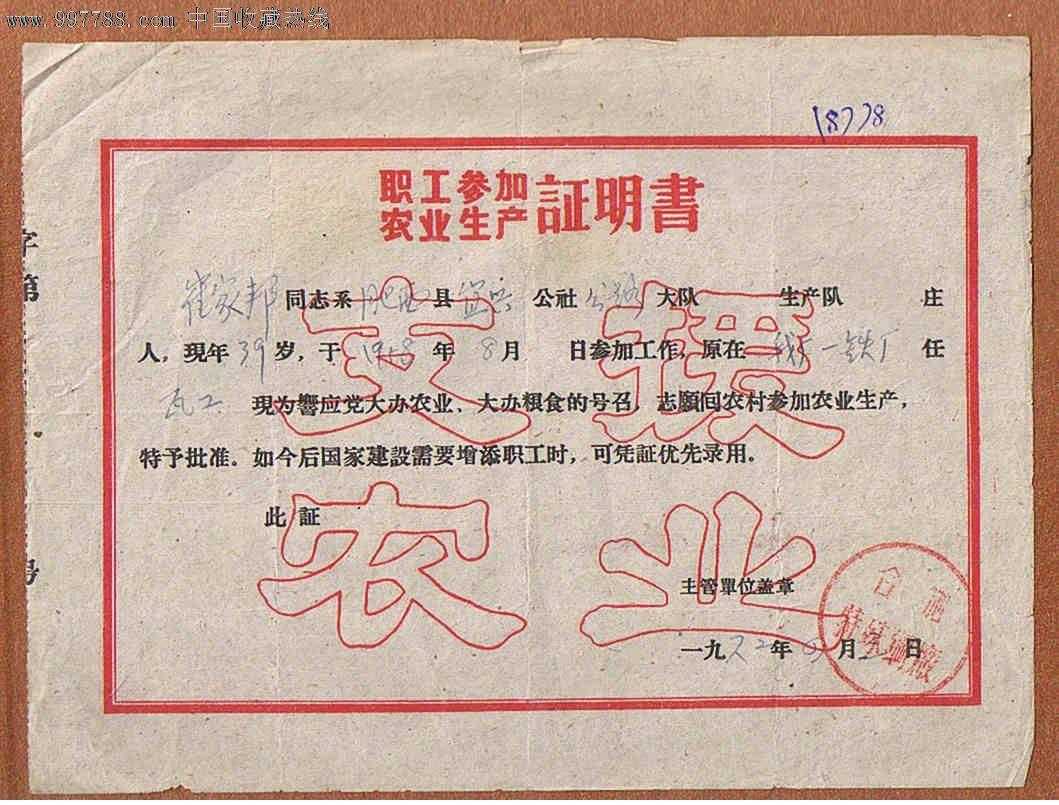 www.997788.com 中国收藏热线
18778
职工参加
农业生产 証明書
字
第
号
崔家邦 同志系 肥西 县 公社 大队 生产队 庄
人，现年 39 岁，于 1958 年 8 月 日参加工作，原在 一铁厂 任
瓦工 現为響应党大办农业、大办粮食的号召，志願囘农村参加农业生产，
特予批准。如今后国家建設需要增添职工时，可凭証优先录用。
此証
支援
农业
主管單位盖章
一九六二年 月 日
合肥
鋼厰